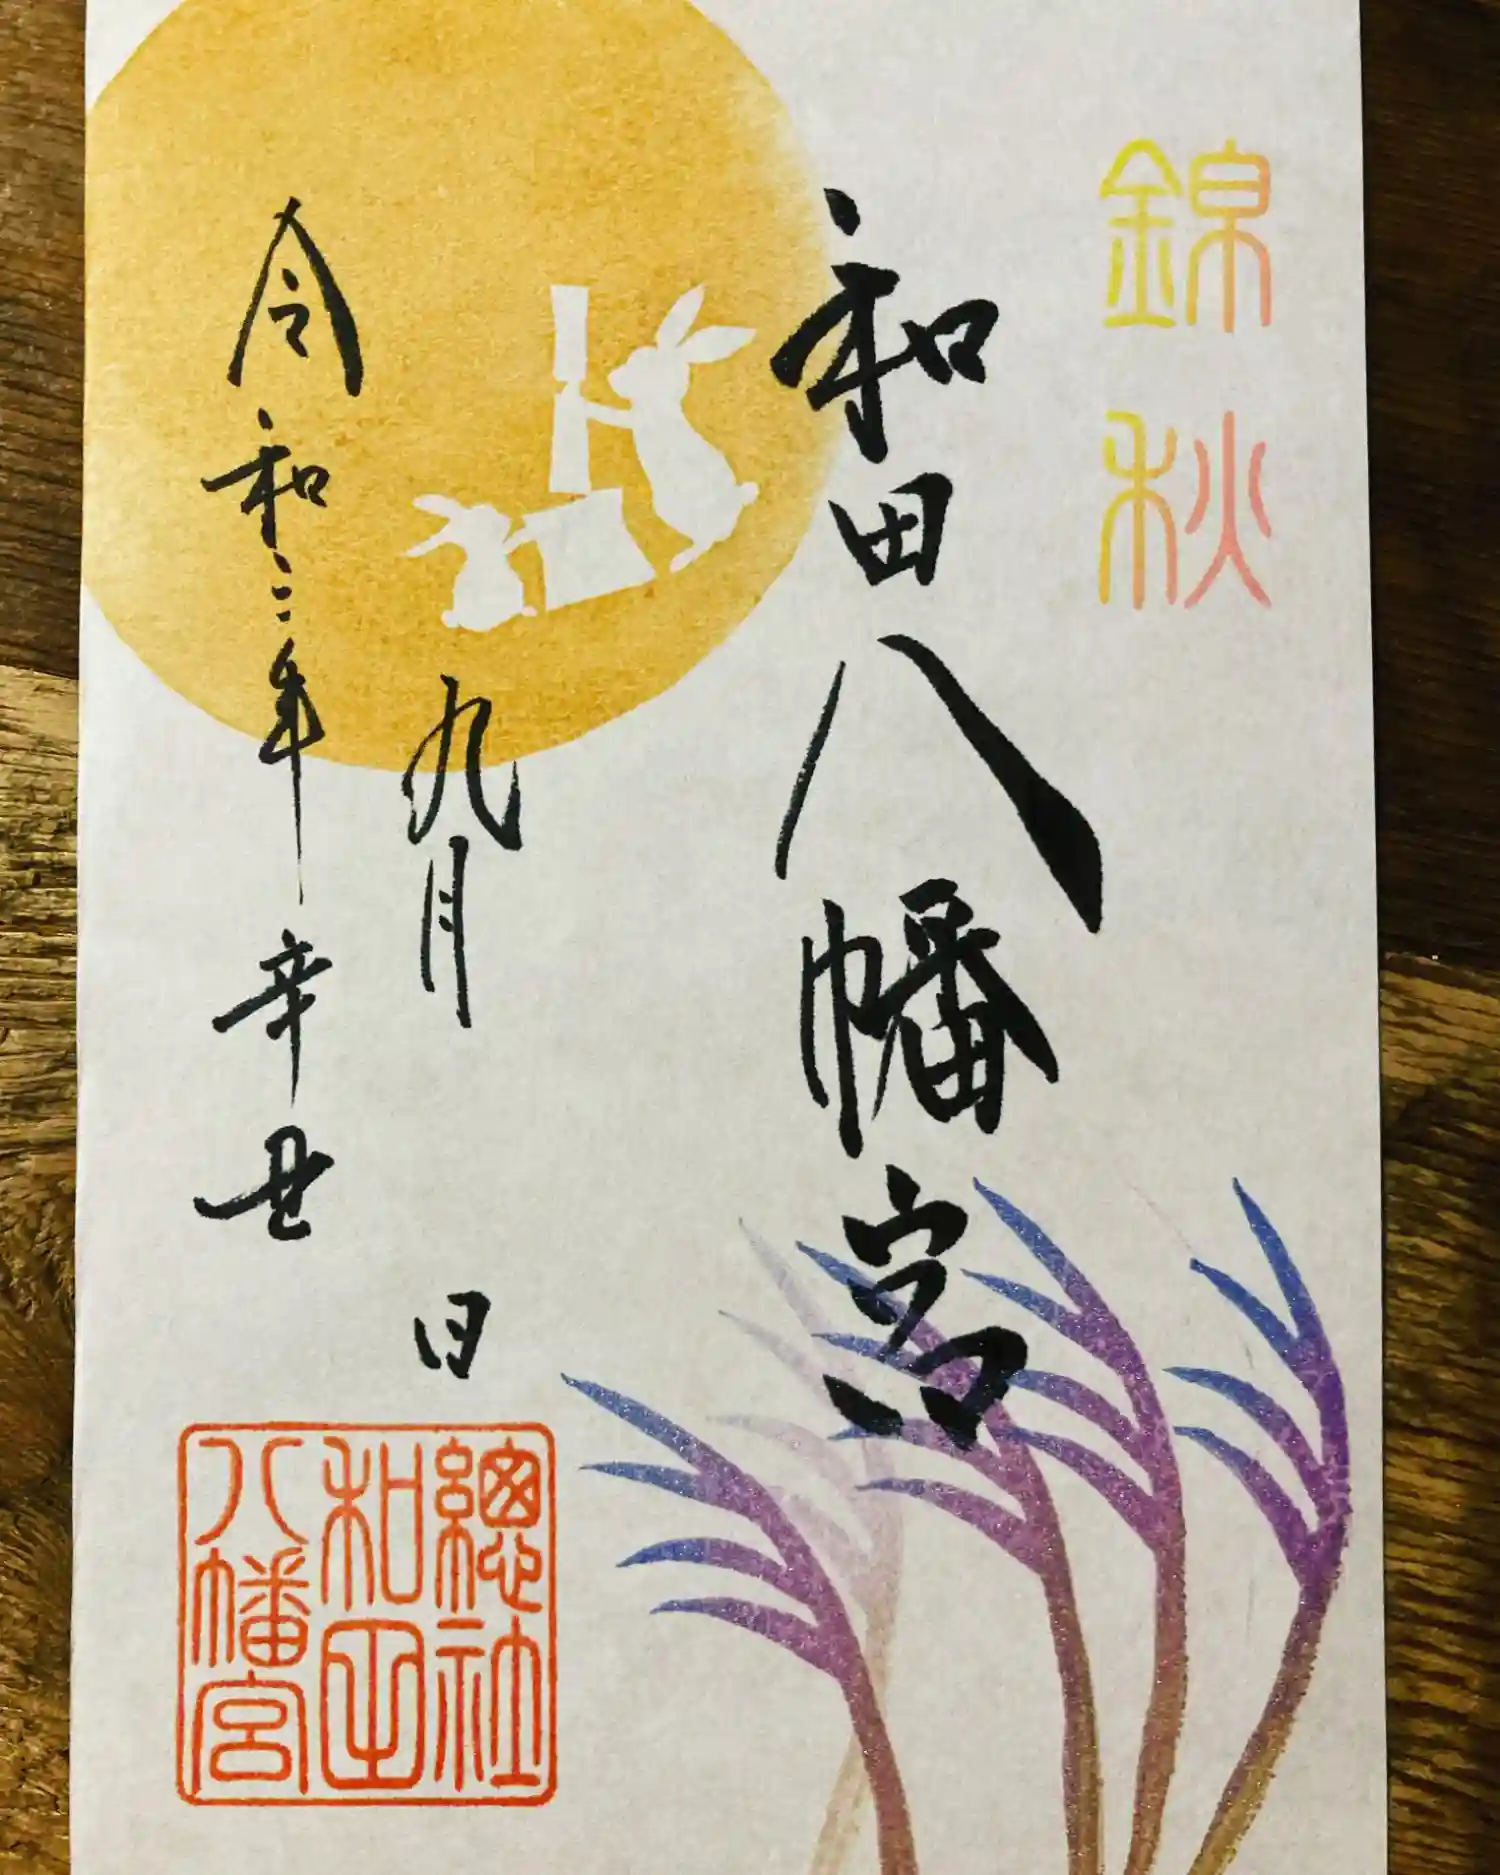 錦秋
和田八幡宮
九月 日
令和三年 辛丑
總社
和田
八幡宮